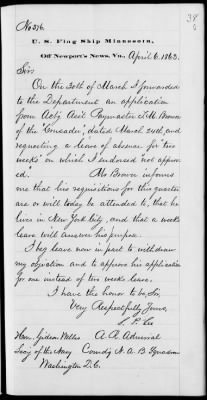 No 376.
U. S. Flag Ship Minnesota,
Off Newport's News, Va., April 6, 1863.
Sir:
On the 30th of March I forwarded
to the Department an application
from Actg Asst Paymaster J. M. Bower
of the "Crusader", dated March 24th, and
requesting a leave of absence for two
weeks' on which I endorsed not approv
ed: Mr. Bower informs
me that his requisitions for this quarter
are or will today be attended to, that he
lives in New York City, and that a weeks
leave will answer his purpose.
I beg leave now in part to withdraw
my objection and to approve his application
for one instead of two weeks leave.
I have the honor to be, Sir,
Very Respectfully Yours,
S. P. Lee
Hon. Gideon Welles A. R. Admiral
Secy of the Navy Comdg N. A. B. Squadron
Washington D. C.